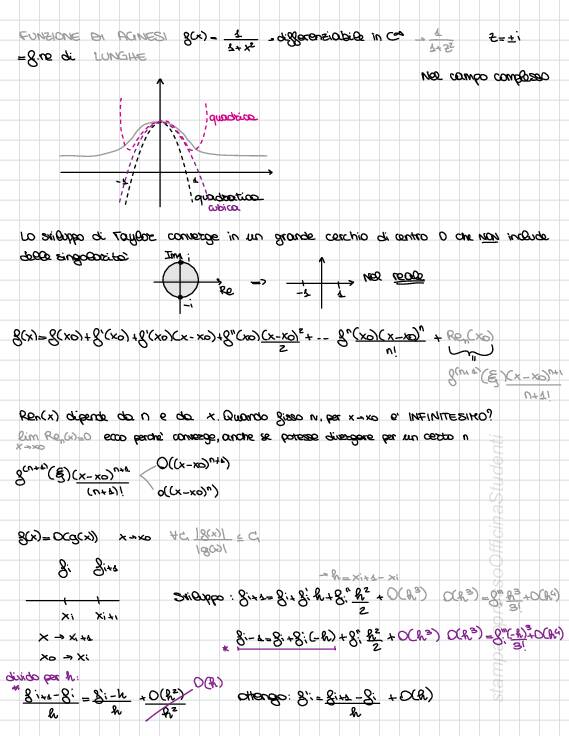 FUNZIONE DI AGNESI f(x) = 1/(1+x²) → differenziabile in C^∞ → 1/(1+z²) z=±i
= f.ne di LUNGHE
Nel campo complesso
quadrica
-1 1
quadratica
cubica
Lo sviluppo di Taylor converge in un grande cerchio di centro 0 che NON include
delle singolarità:
Im i
Re → -1 1 Nel reale
-i
f(x)=f(x0)+f'(x0)+f'(x0)(x-x0)+f''(x0)(x-x0)²/2 + ... f^n(x0)(x-x0)^n/n! + Re_n(x0)
f^(n+1)(ξ)(x-x0)^(n+1)/n+1!
Re_n(x) dipende da n e da x. Quando fisso n, per x→x0 è INFINITESIMO?
lim Re_n(x)=0 ecco perché converge, anche se potesse divergere per un certo n
x→x0
f^(n+1)(ξ)(x-x0)^(n+1)/(n+1)! O((x-x0)^(n+1))
o((x-x0)^n)
f(x)=O(g(x)) x→x0 |f(x)|/|g(x)| ≤ C
f_i f_i+1
→ h=x_i+1-x_i
sviluppo: f_i+1=f_i+f_i' h+f_i'' h²/2 + O(h³) O(h³)=f_i''' h³/3!+O(h⁴)
x_i x_i+1
* f_i-1=f_i+f_i'(-h)+f_i'' h²/2 + O(h³) O(h³)=f_i'''(-h)³/3!+O(h⁴)
x → x_i+1
x0 → x_i
divido per h:
* f_i+1-f_i/h = f_i' h/h + O(h²)/h² O(h) ottengo: f_i'=f_i+1-f_i/h + O(h)